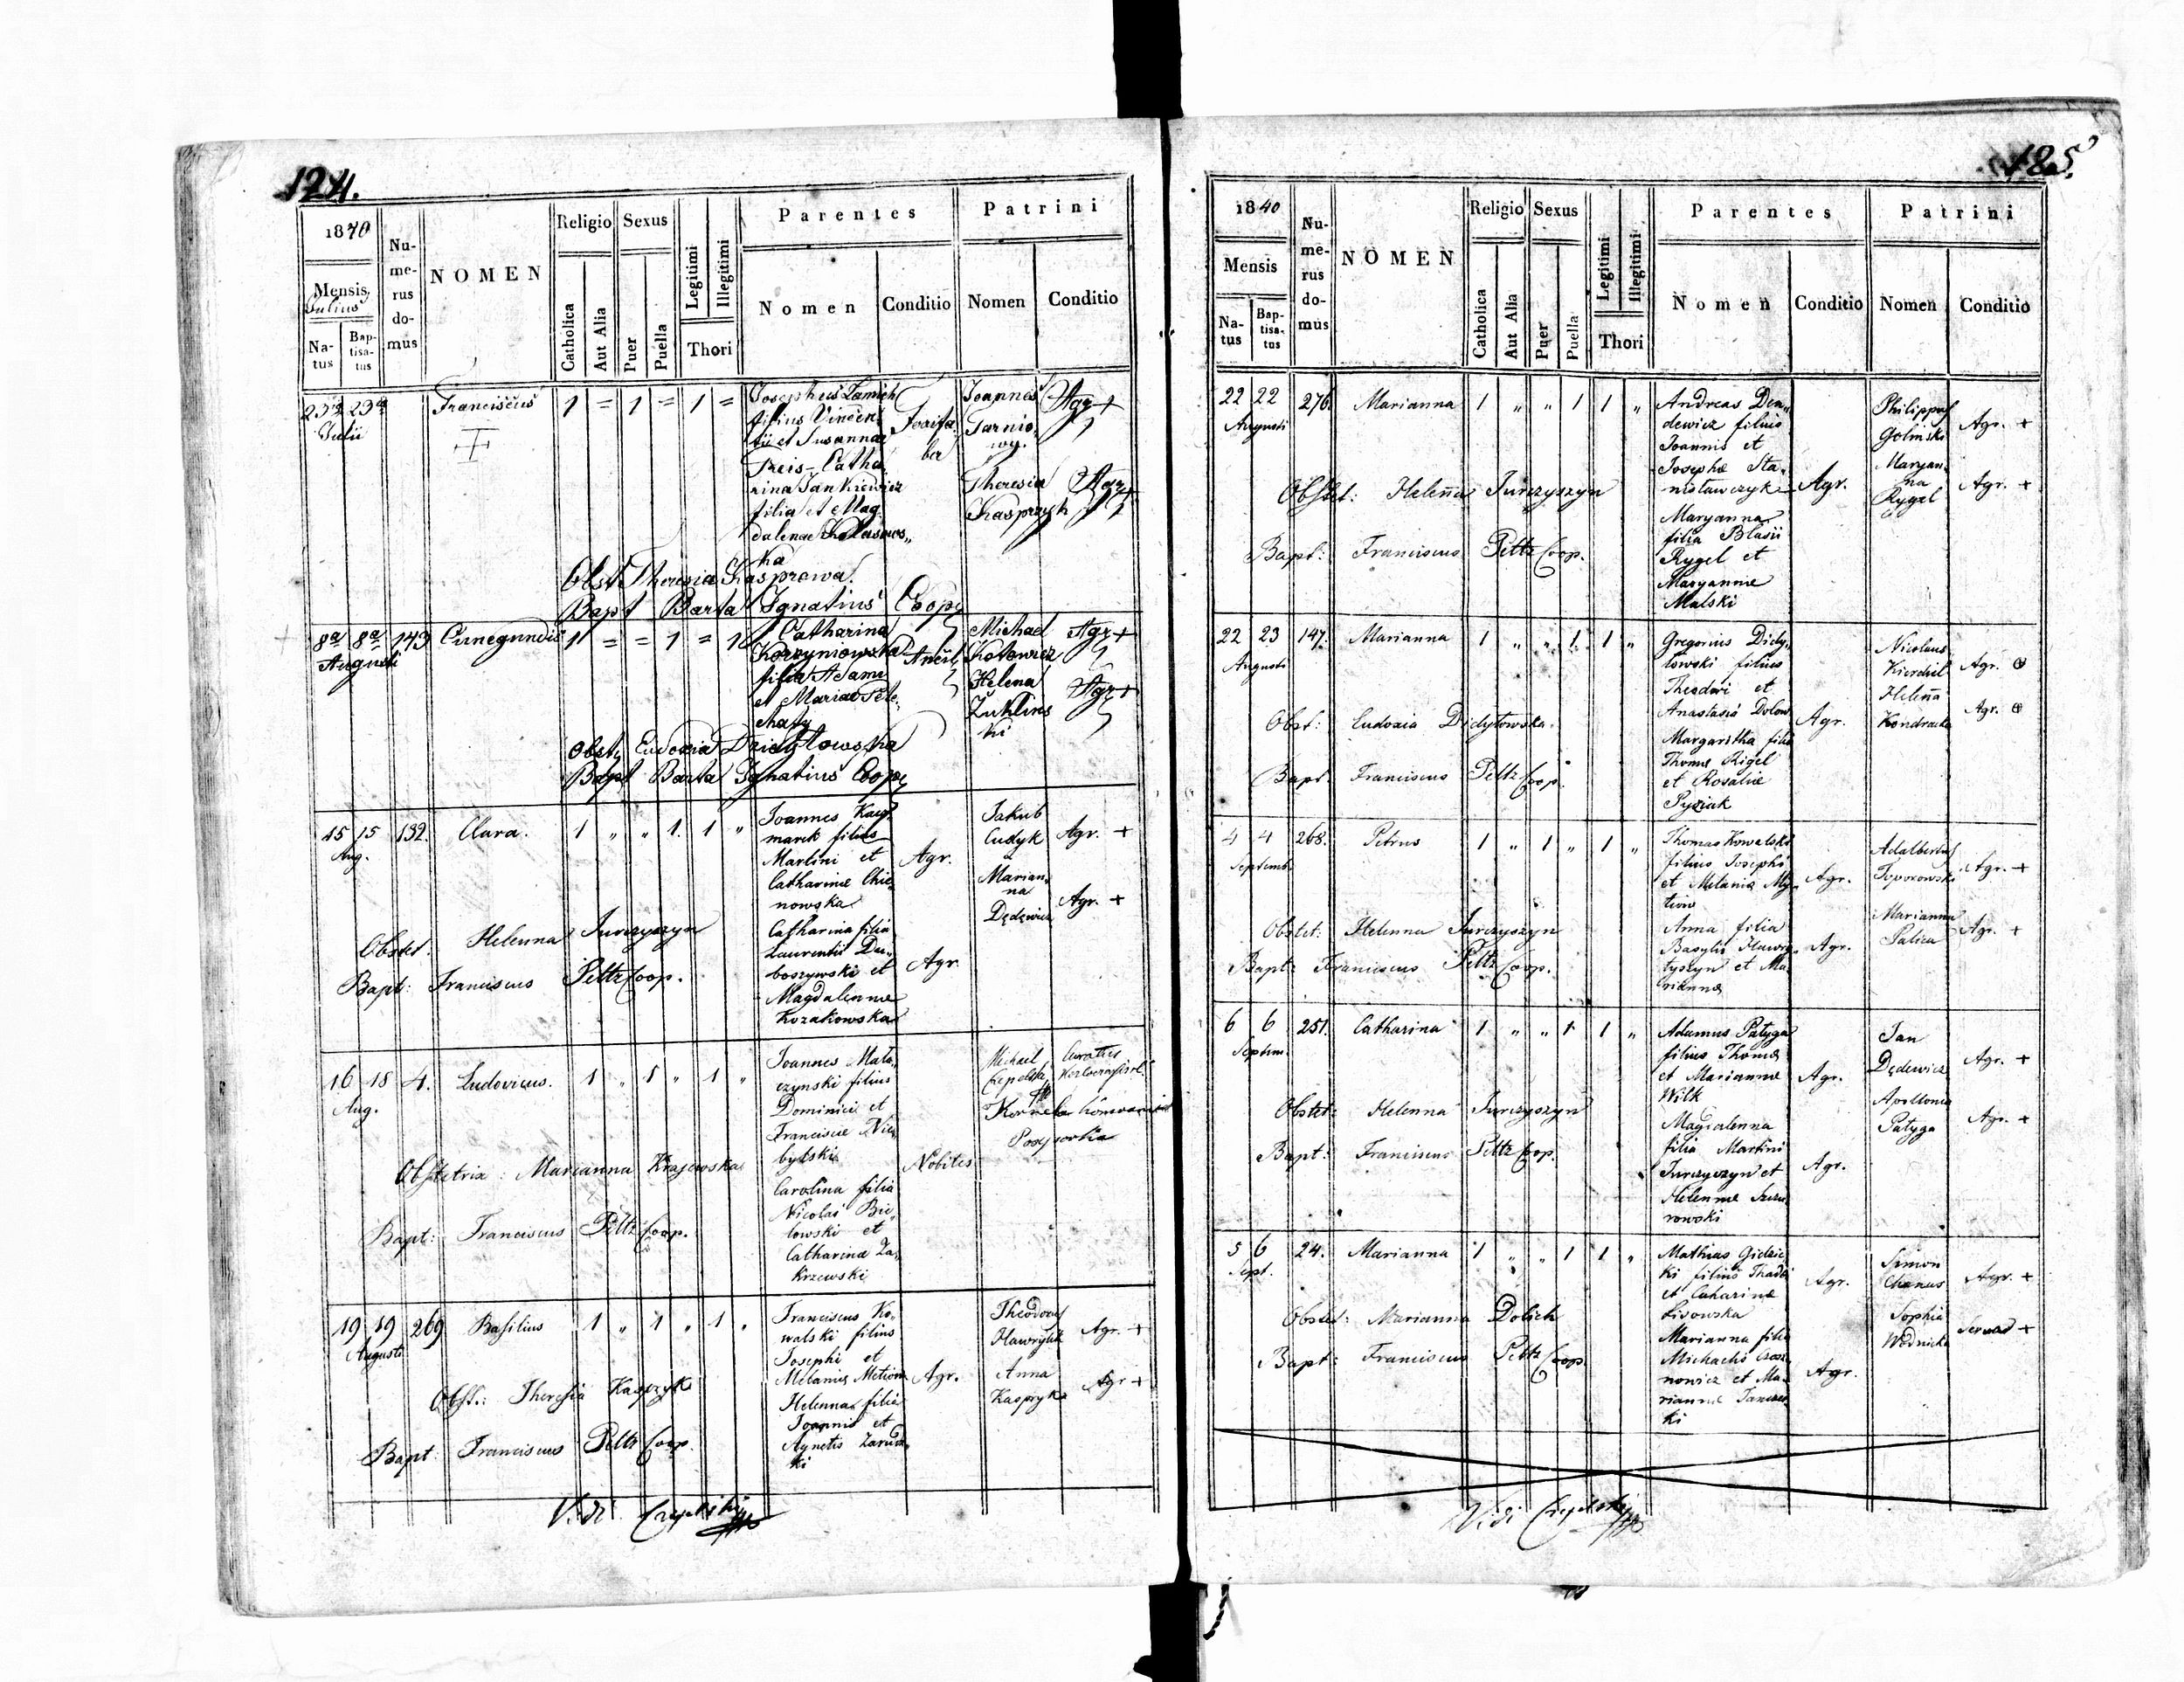 124.
1840
Mensis
Julius
Natus
Baptisatus
Numerus domus
NOMEN
Religio
Catholica
Aut Alia
Sexus
Puer
Puella
Legitimi
Illegitimi
Thori
Parentes
Nomen
Conditio
Patrini
Nomen
Conditio
23a 23a Franciscus 1 = 1 = 1 =
Julii
Josephus
filius Vincen
tii et Susannae
Treis Catha
rina Jankiewicz
filia et Mag
dalenae
ka
Joannes Agr +
Tarnio
wy.
Theresia Agr +
Kasprzyk
Obst Theresia Kasprowa.
Bapt Barta Ignatius Coop
8a 8a 143 Cunegundis 1 = = 1 = 1
Augusti
Catharina
Korzyniowska
filia Adami
et Mariae Pele
chaty
Ancil
Michael Agr +
Kotowicz
Helena Agr +
Zuklins
ki
Obst Eudoxia Dzidytowska
Bapt Barta Ignatius Coop
15 15 132. Clara. 1 „ „ 1. 1 „
Aug.
Joannes Kacz
marek filius
Martini et
Catharinæ Chie
nowska
Agr.
Catharina filia
Laurentii Du
boszewski et
Magdalennæ
Kozakowska
Agr.
Jakub
Cudyk
Agr. +
Marian
na
Dędewicz
Agr. +
Obstet: Helenna Jurczyszyn
Bapt: Franciscus Peltz Coop.
16 18 4. Ludovicus. 1 „ 1 „ 1 „
Aug.
Joannes Mała
czynski filius
Dominici et
Franciscæ Nie
bylski
Carolina filia
Nicolai Bie
lowski et
Catharina Za
krzewski
Nobiles
Michael
Curatus
Obstetrix: Marianna Krajewska
Bapt: Franciscus Peltz Coop.
19 19 269 Basilius 1 „ 1 „ 1 „
Augusti
Franciscus Ko
walski filius
Josephi et
Melaniæ Metiow
Helenna filia
Joannis et
Agnetis Zarud
ki
Agr.
Theodorus
Hawryluk
Agr. +
Anna
Kaspryka
Agr +
Obst.: Theresia Kasprzyk
Bapt: Franciscus Peltz Coop.
Vidi
125.
1840
Mensis
Natus
Baptisatus
Numerus domus
NOMEN
Religio
Catholica
Aut Alia
Sexus
Puer
Puella
Legitimi
Illegitimi
Thori
Parentes
Nomen
Conditio
Patrini
Nomen
Conditio
22 22 276. Marianna 1 „ „ 1 1 „
Augusti
Andreas Den
dewicz filius
Joannis et
Josephæ Sta
nisławczyk
Maryanna
filia Blasii
Rygel et
Maryannæ
Malski
Agr.
Philippus
Golinski
Agr. +
Maryan
na
Rygel
Agr. +
Obstet: Helenna Jurczyszyn
Bapt: Franciscus Peltz Coop.
22 23 147. Marianna 1 „ „ 1. 1 „
Augusti
Gregorius Didy
towski filius
Theodori et
Anastasiæ Dolow
Margaritha filia
Thomæ Rigel
et Rosaliæ
Pyziak
Agr.
Nicolaus
Agr.
Helenna
Agr.
Obst: Eudoxia Didytowska
Bapt. Franciscus Peltz Coop.
4 4 268. Petrus 1 „ 1 „ 1 „
Septemb.
Thomas Kowalski
filius Josephi
et Melaniæ My
tiow
Agr.
Anna filia
Basylii Hawry
tyszyn et Ma
riannæ
Agr.
Adalbertus
Toporowski
Agr. +
Marianna
Salica
Agr. +
Obstet: Helenna Jurczyszyn
Bapt: Franciscus Peltz Coop.
6 6 251. Catharina 1 „ „ 1. 1 „
Septem.
Adamus Patyga
filius Thomæ
et Mariannæ
Wilk
Agr.
Magdalenna
filia Martini
Jurczyszyn et
Helennæ Szcu
rowski
Agr.
Jan
Dędewicz
Agr. +
Apollonia
Patyga
Agr. +
Obstet: Helenna Jurczyszyn
Bapt: Franciscus Peltz Coop.
5 6 24. Marianna 1 „ „ 1 1 „
Sept.
Mathias Gidzic
ki filius Thadei
et Catharinæ
Lisowska
Agr.
Marianna filia
Michaelis
nowicz et Ma
riannæ
ki
Agr.
Simon
Chanas
Agr. +
Sophia
Wodnicka
+
Obstet: Marianna Dolich
Bapt: Franciscus Peltz Coop.
Vidi